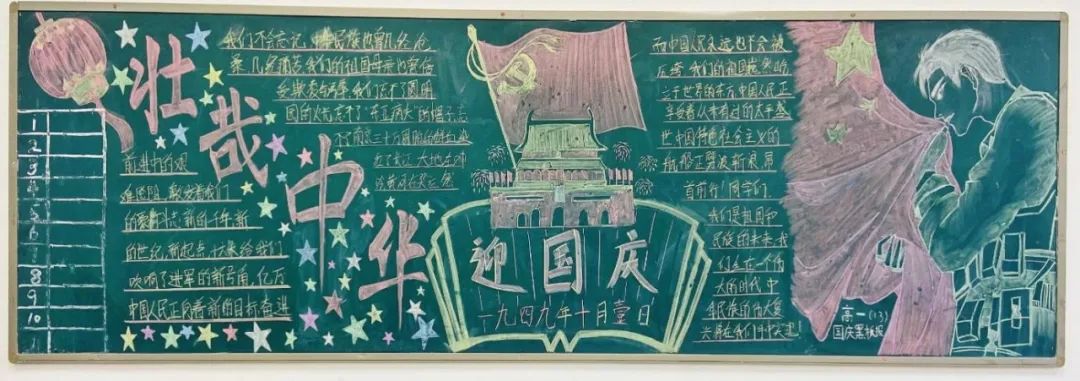 壮哉中华
1
2
3
4
5
6
8
9
10
我们不会忘记，中华民族也曾几经沧
桑，几多痛苦，我们的祖国母亲也曾饱
受欺凌与辱
园的火
不 南京三十万同胞的鲜血染
红了长江 大地在呻
前进中的艰
难险阻，激发着我们
的豪情斗志，新的千年，新
的世纪，新起点，未来给我们
吹响了进军的新号角，亿万
中国人民正向着新的目标奋进
迎国庆
一九四九年十月壹日
而中国人民永远也不会被
压垮，我们的祖国巍然屹
立于世界的东方，中国人民正
享受着从未有过的太平盛
世中国特色社会主义的
航船正劈波斩浪昂
首前行！同学们，
我们是祖国和
民族的未来，我
们生在一个伟
大的时代，中
华民族的伟大复
兴将在我们手中实现！
高一(13)
国庆黑板报